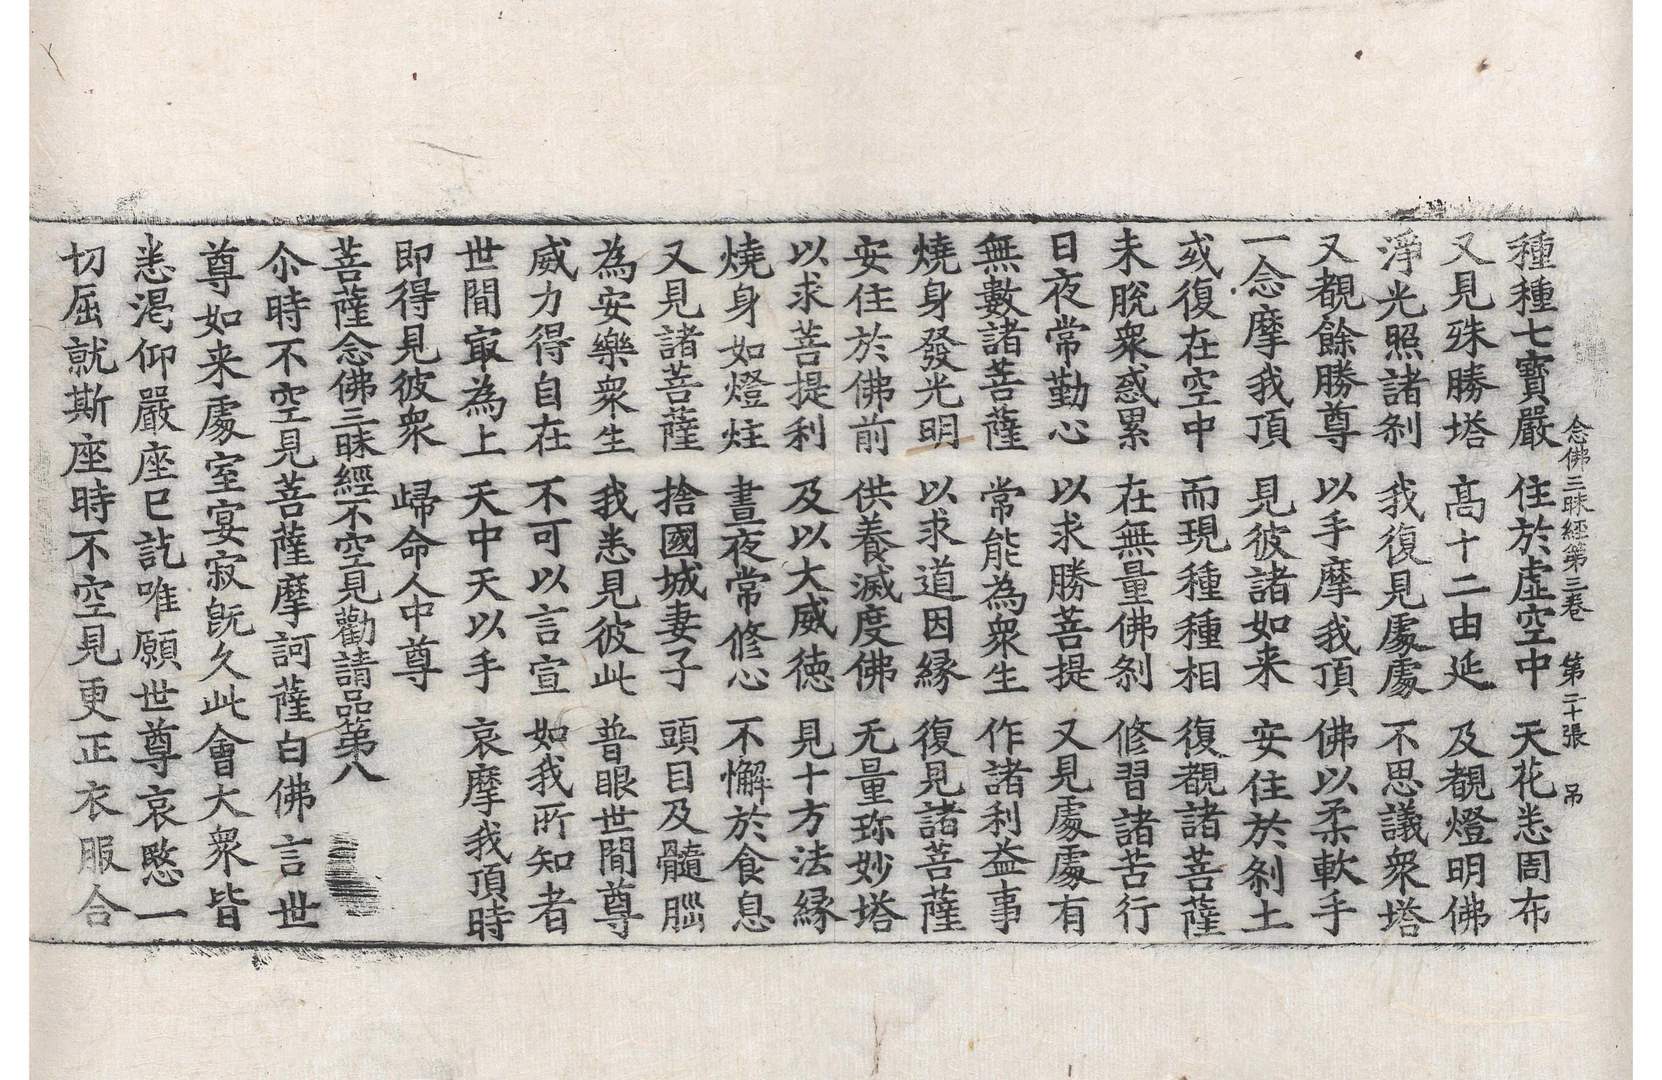 念佛三昧經第三卷　第二十張　吊
種種七寶嚴　住於虛空中　天花悉周布
又見殊勝塔　高十二由延　及覩燈明佛
淨光照諸刹　我復見處處　不思議衆塔
又覩餘勝尊　以手摩我頂　佛以柔軟手
一念摩我頂　見彼諸如来　安住於刹土
或復在空中　而現種種相　復覩諸菩薩
未脫衆惑累　在無量佛刹　修習諸苦行
日夜常勤心　以求勝菩提　又見處處有
無數諸菩薩　常能為衆生　作諸利益事
燒身發光明　以求道因縁　復見諸菩薩
安住於佛前　供養滅度佛　无量珎妙塔
以求菩提利　及以大威徳　見十方法縁
燒身如燈炷　晝夜常修心　不懈於食息
又見諸菩薩　捨國城妻子　頭目及髓腦
為安樂衆生　我悉見彼此　普眼世間尊
威力得自在　不可以言宣　如我所知者
世間㝡為上　天中天以手　哀摩我頂時
即得見彼衆　歸命人中尊
菩薩念佛三昧經不空見勸請品第八
尒時不空見菩薩摩訶薩白佛言世
尊如来處室宴寂既久此會大衆皆
悉渇仰嚴座已訖唯願世尊哀愍一
切屈就斯座時不空見更正衣服合